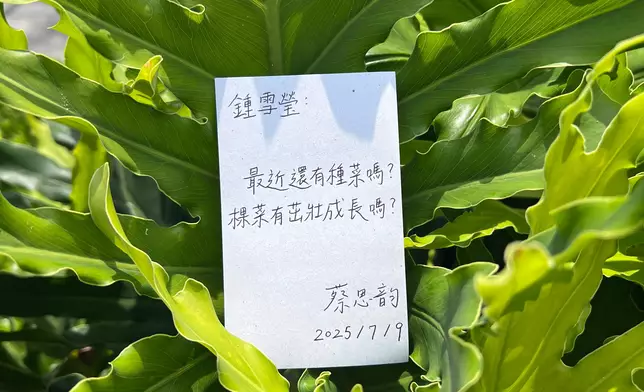 鍾雪瑩：
最近還有種菜嗎？
棵菜有茁壯成長嗎？
蔡思韵
2025/7/9